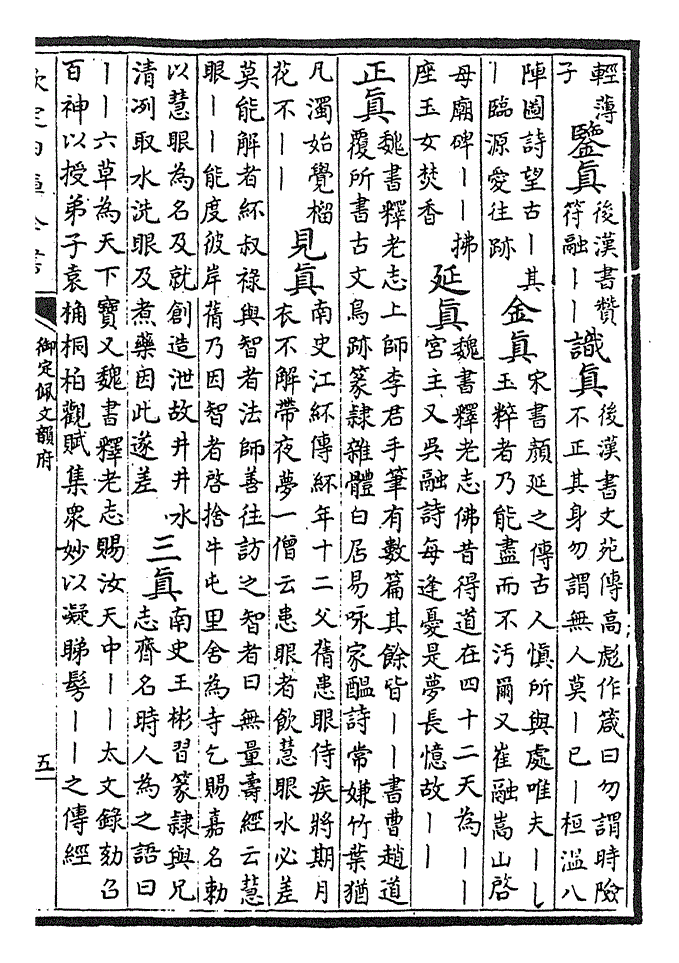 輕薄
子
鑒真
後漢書贊
符融丨丨
識真
後漢書文苑傳高彪作箴曰勿謂時險
不正其身勿謂無人莫丨已丨桓溫八
陣圖詩望古丨其
丨臨源愛往跡
金真
宋書顏延之傳古人慎所與處唯夫丨丨
玉粹者乃能盡而不汚爾又崔融嵩山啓
母廟碑丨丨拂
座玉女焚香
延真
魏書釋老志佛昔得道在四十二天為丨丨
宮主又吳融詩每逢憂是夢長憶故丨丨
正真
魏書釋老志上師李君手筆有數篇其餘皆丨丨書曹趙道
覆所書古文鳥跡篆隸雜體白居易咏家醖詩常嫌竹葉猶
凡濁始覺榴
花不丨丨
見真
南史江紑傳紑年十二父蒨患眼侍疾將期月
衣不解帶夜夢一僧云患眼者飲慧眼水必差
莫能解者紑叔祿與智者法師善往訪之智者曰無量壽經云慧
眼丨丨能度彼岸蒨乃因智者啓捨牛屯里舍為寺乞賜嘉名勅
以慧眼為名及就創造泄故井井水
清冽取水洗眼及煮藥因此遂差
三真
南史王彬習篆隸與兄
志齊名時人為之語曰
丨丨六草為天下寶又魏書釋老志賜汝天中丨丨太文錄劾召
百神以授弟子袁桷桐柏觀賦集衆妙以凝睇髣丨丨之傳經
欽定四庫全書
御定佩文韻府
五